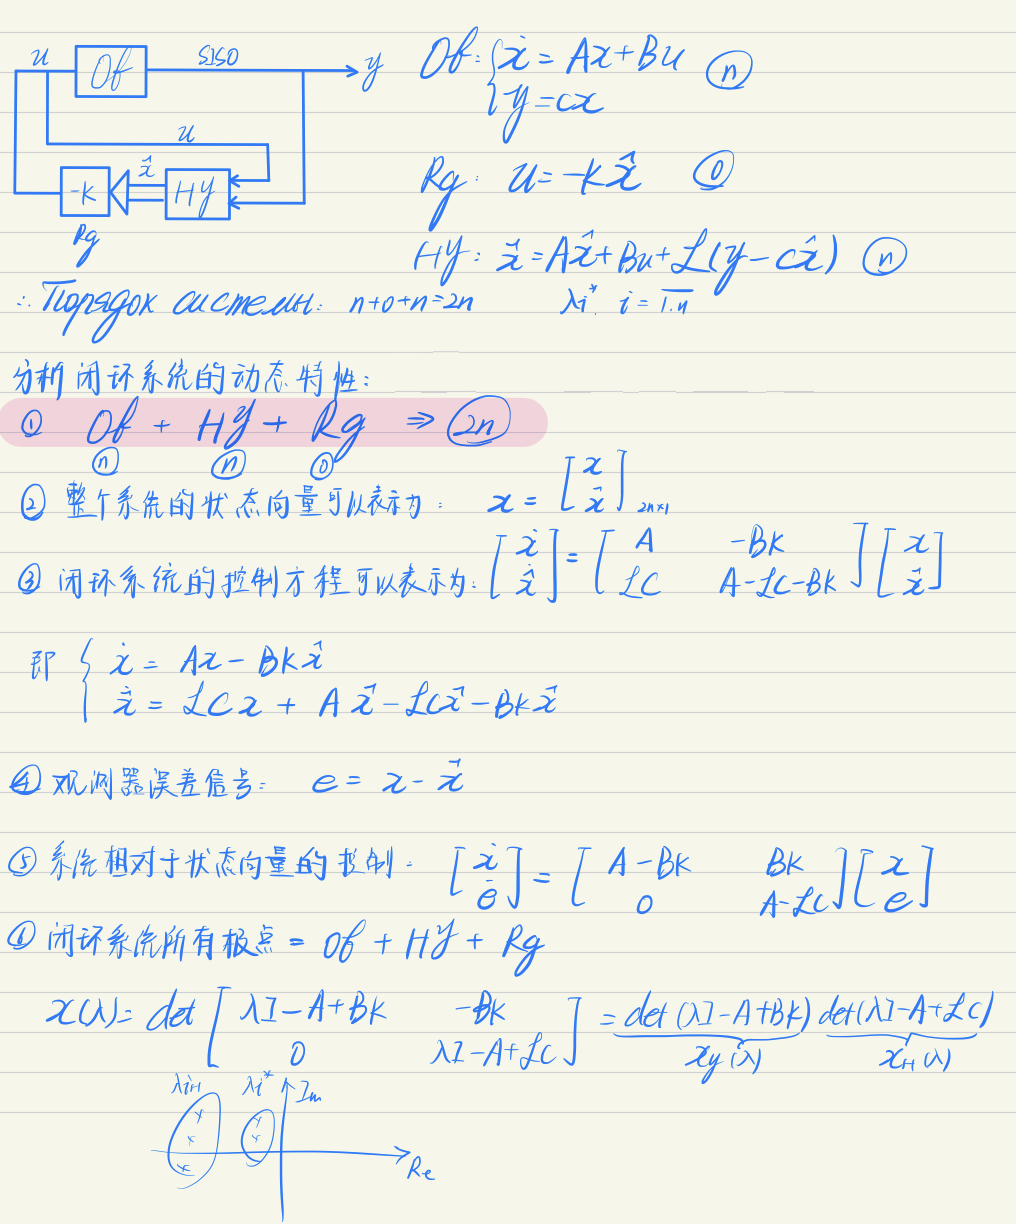 u Of SISO y
u
-K x̂ HУ
Rg
Of: { ẋ = Ax + Bu (n)
{ y = cx
Rg: u = -Kx̂ (0)
HУ: x̂ = Ax̂ + Bu + L(y - cx̂) (n)
∴ Порядок системы: n+0+n=2n λi*. i = 1.n
分析闭环系统的动态特性:
① Of + HУ + Rg ⇒ (2n)
(n) (n) (0)
② 整个系统的状态向量可以表示为: x = [x x̂] 2n×1
③ 闭环系统的控制方程可以表示为: [ẋ x̂̇] = [A -BK; LC A-LC-BK] [x x̂]
即 { ẋ = Ax - BKx̂
{ x̂̇ = LCx + Ax̂ - LCx̂ - BKx̂
④ 观测器误差信号: e = x - x̂
⑤ 系统相对于状态向量的控制: [ẋ ė] = [A-BK BK; 0 A-LC] [x e]
⑥ 闭环系统所有极点 = Of + HУ + Rg
x(λ) = det [λI-A+BK -BK; 0 λI-A+LC] = det(λI-A+BK) det(λI-A+LC)
xy(λ) xH(λ)
λiH λi* Im
Re